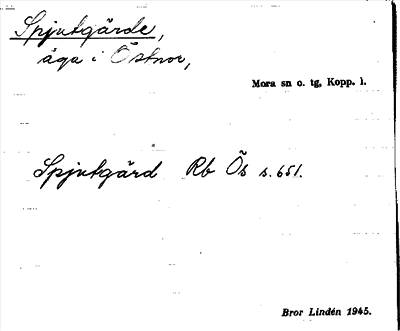 Spjutgärde,
äga i Östnor,
Mora sn o. tg, Kopp. l.
Spjutgärd Rb Ös s. 651.
Bror Lindén 1945.